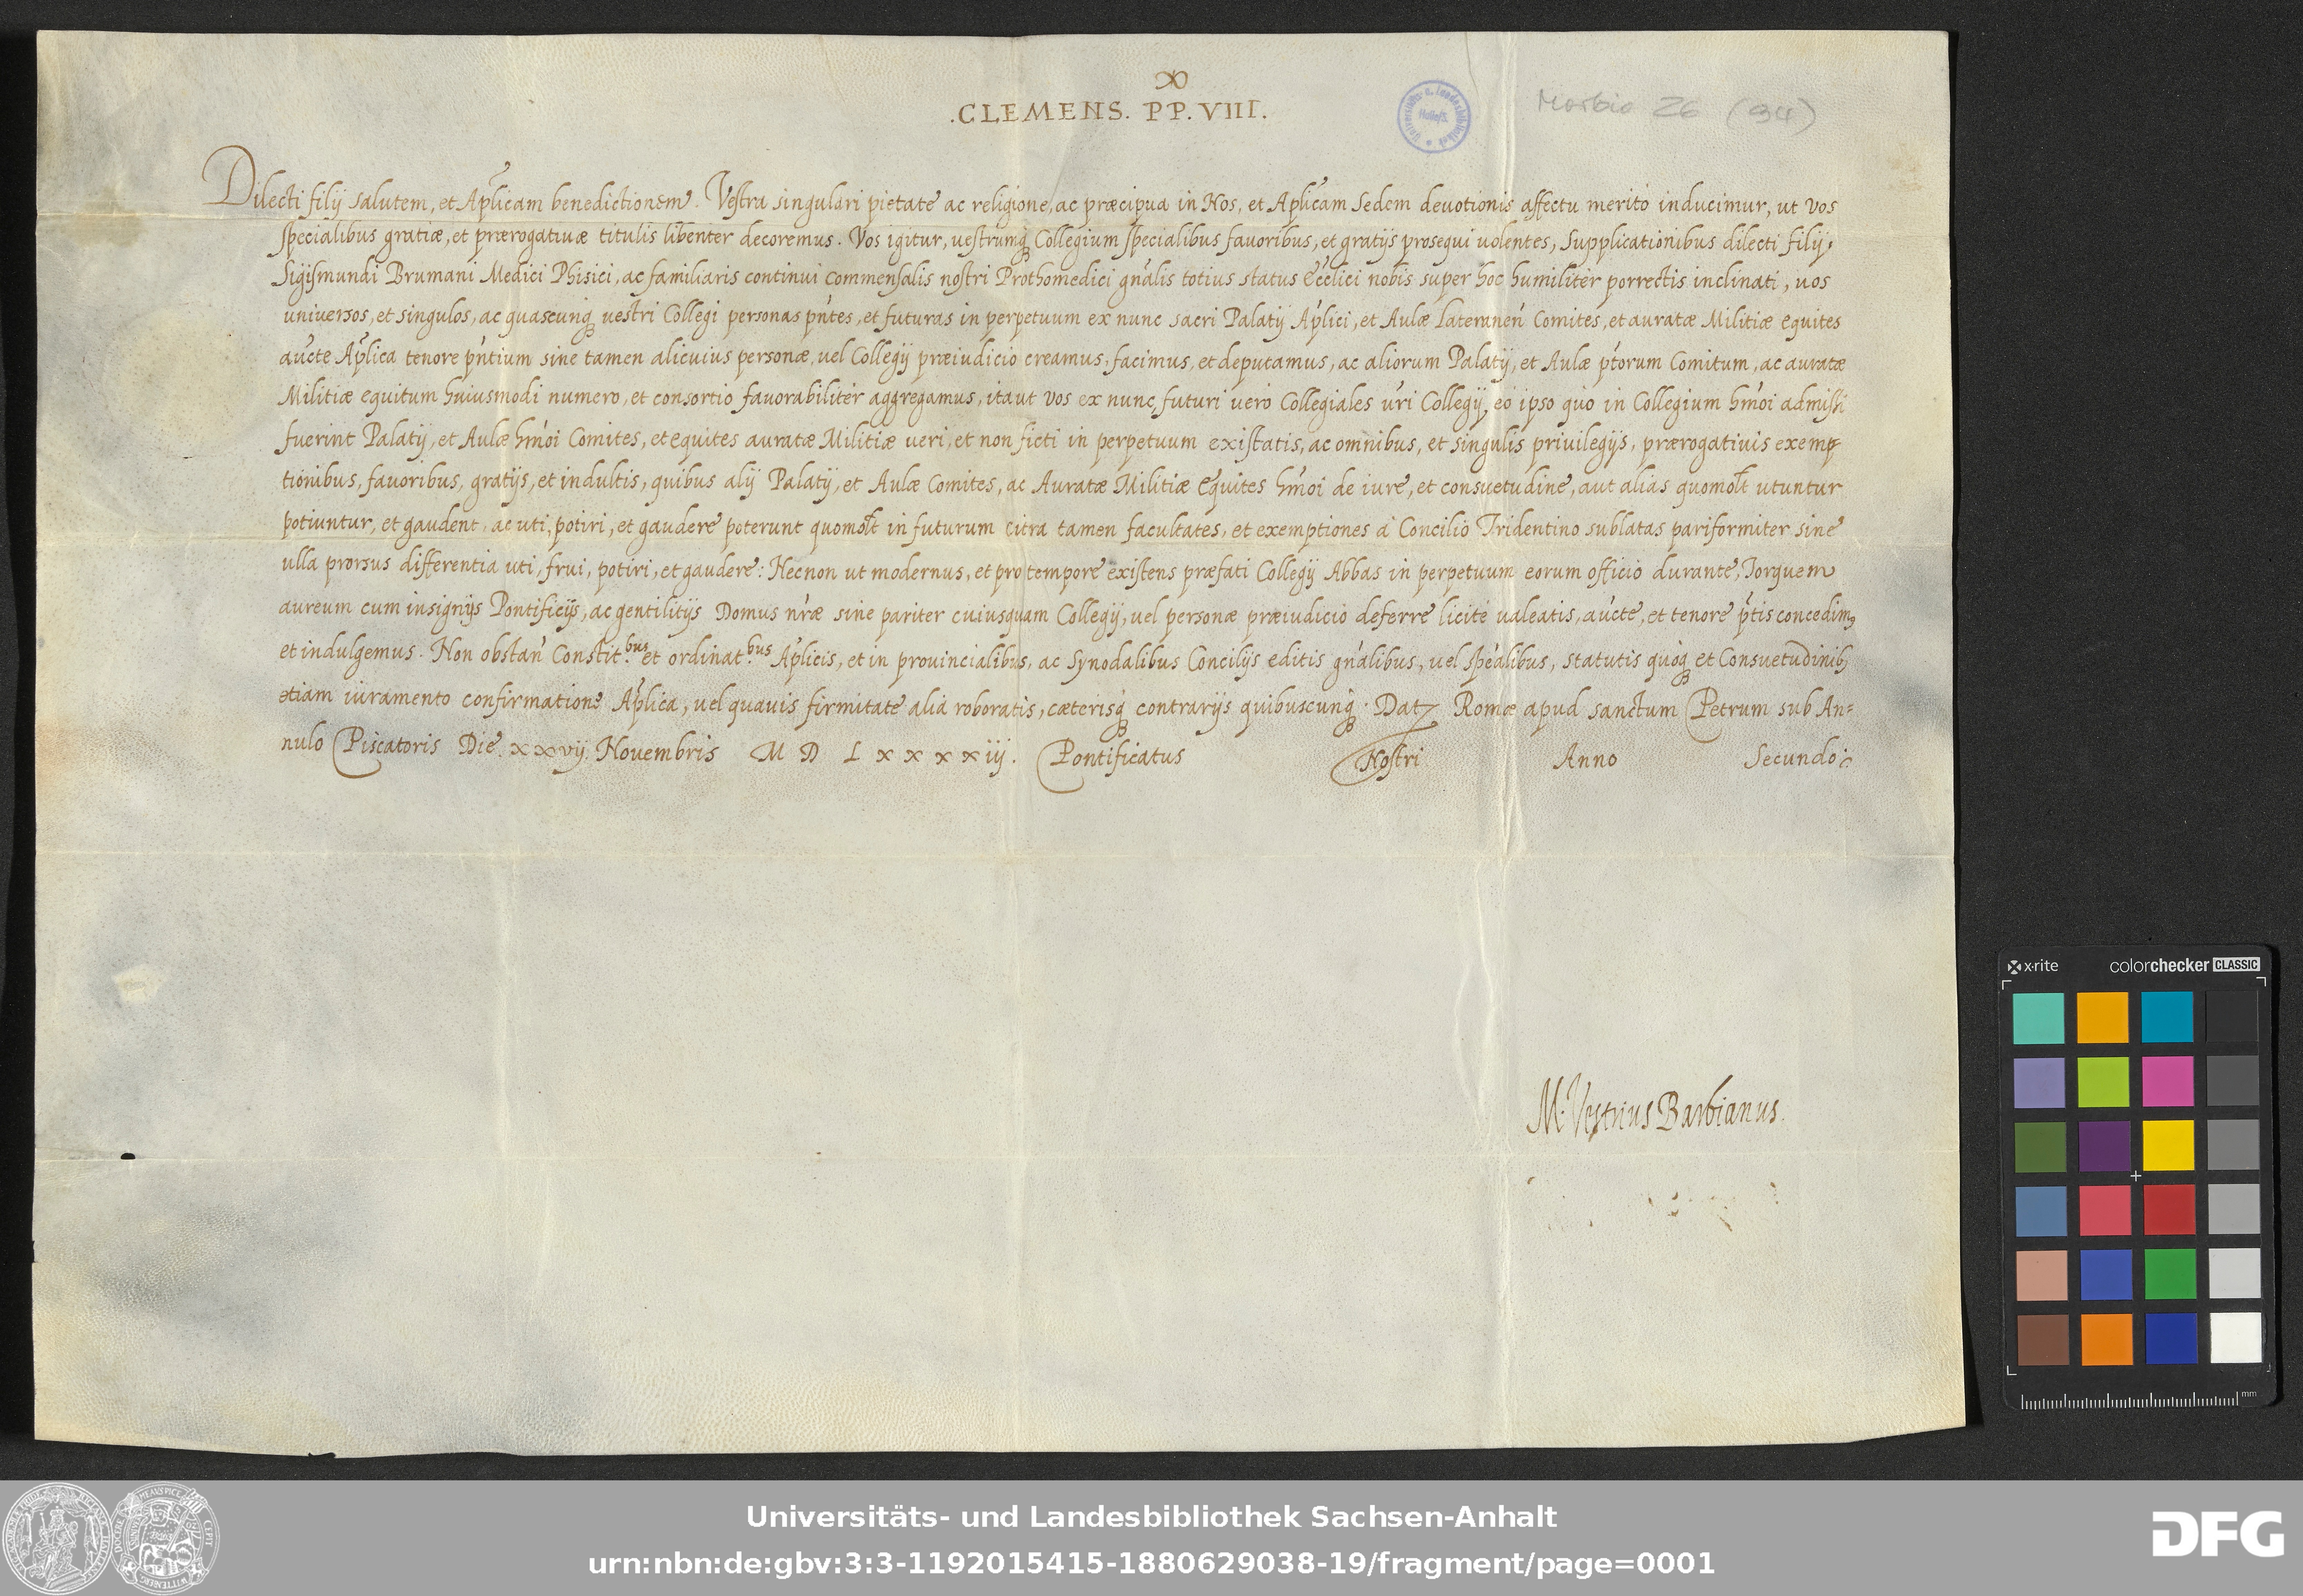 .CLEMENS. PP. VIII.
Morbio Z6 (94)
Dilecti filij salutem, et Aplicam benedictionem. Vestra singulari pietate ac religione, ac præcipua in Nos, et Aplicam Sedem deuotionis affectu merito inducimur, ut vos
specialibus gratiæ, et prærogatiuæ titulis libenter decoremus. Vos igitur, uestrumq Collegium specialibus fauoribus, et gratijs prosequi uolentes, Supplicationibus dilecti filij
Sigismundi Brumani Medici Phisici, ac familiaris continui commensalis nostri Prothomedici gnalis totius status Ecclici nobis super hoc humiliter porrectis inclinati, uos
universos, et singulos, ac quascunq uestri Collegi personas pntes, et futuras in perpetuum ex nunc sacri Palatij Aplici, et Aulæ Lateranen Comites, et auratæ Militiæ equites
aucte Aplica tenore pntium sine tamen alicuius personæ, uel Collegij præiudicio creamus, facimus, et deputamus, ac aliorum Palatij, et Aulæ ptorum Comitum, ac auratæ
Militiæ equitum huiusmodi numero, et consortio fauorabiliter aggregamus, itaut vos ex nunc, futuri uero Collegiales uri Collegij eo ipso quo in Collegium hmoi admissi
fuerint Palatij, et Aulæ hmoi Comites, et equites auratæ Militiæ ueri, et non ficti in perpetuum existatis, ac omnibus, et singulis priuilegijs, prærogatiuis exemp
tionibus, fauoribus, gratijs, et indultis, quibus alij Palatij, et Aulæ Comites, ac Auratæ Militiæ Equites hmoi de iure, et consuetudine, aut alias quomolt utuntur
potiuntur, et gaudent, ac uti, potiri, et gaudere poterunt quomolt in futurum citra tamen facultates, et exemptiones à Concilio Tridentino sublatas pariformiter sine
ulla prorsus differentia uti, frui, potiri, et gaudere: Necnon ut modernus, et pro tempore existens præfati Collegij Abbas in perpetuum eorum officio durante, Torquem
aureum cum insignijs Pontificijs, ac gentilitijs Domus nræ sine pariter cuiusquam Collegij, uel personæ præiudicio deferre licitè ualeatis, aucte, et tenore ptis concedim9
et indulgemus. Non obstan Constit.bus et ordinat.bus Aplicis, et in prouincialibus, ac Synodalibus Concilijs editis gnalibus, uel spealibus, statutis quoq et Consuetudinib9
etiam iuramento confirmatione Aplica, uel quauis firmitate alia roboratis, cæterisq contrarijs quibuscunq. Dat Romæ apud sanctum Petrum sub An=
nulo Piscatoris Die. xxvij. Nouembris M D L x x x x iij. Pontificatus Nostri Anno Secundo
M. Vestrius Barbianus.
x·rite colorchecker CLASSIC
mm
Universitäts- und Landesbibliothek Sachsen-Anhalt
urn:nbn:de:gbv:3:3-1192015415-1880629038-19/fragment/page=0001
DFG